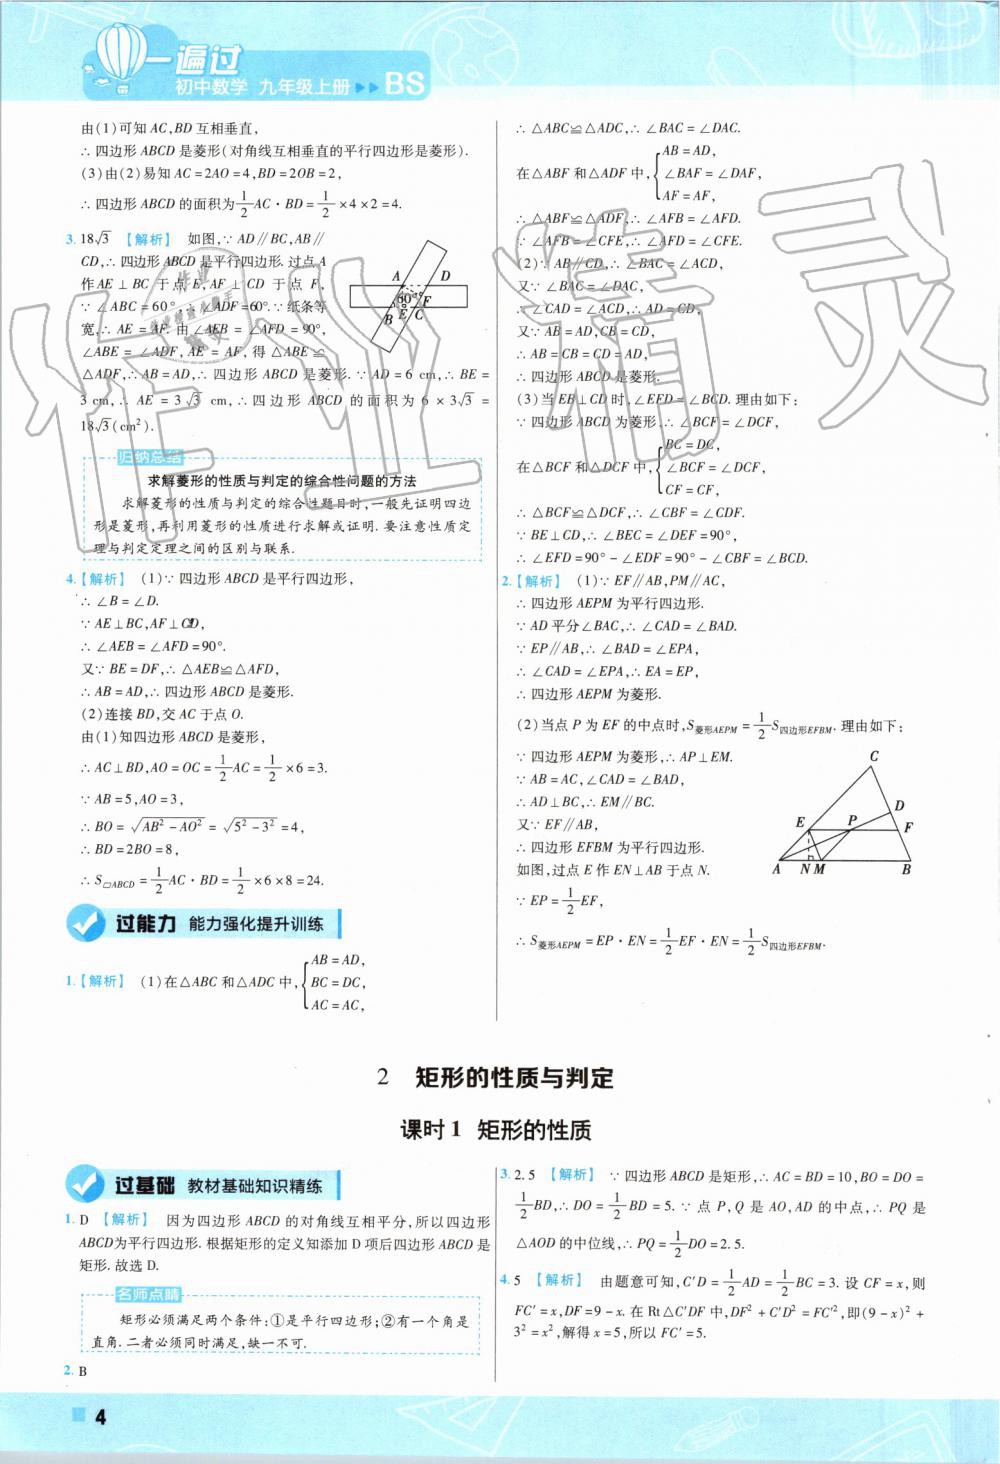 一遍过
初中数学 九年级上册 ▶▶ BS
由(1)可知AC,BD互相垂直,
∴四边形ABCD是菱形(对角线互相垂直的平行四边形是菱形).
(3)由(2)易知AC=2AO=4,BD=2OB=2,
∴四边形ABCD的面积为1/2AC·BD=1/2×4×2=4.
3. 18√3 【解析】 如图,∵AD∥BC,AB∥
CD,∴四边形ABCD是平行四边形.过点A
作AE⊥BC于点E,AF⊥CD于点F,
∵∠ABC=60°,∴∠ADF=60°.∵纸条等
宽,∴AE=AF.由∠AEB=∠AFD=90°,
∠ABE=∠ADF,AE=AF,得△ABE≌
△ADF,∴AB=AD,∴四边形ABCD是菱形.∵AD=6 cm,∴BE=
3 cm,∴AE=3√3 cm,∴四边形ABCD的面积为6×3√3=
18√3(cm²).
A D
60° F
B E C
归纳总结
求解菱形的性质与判定的综合性问题的方法
求解菱形的性质与判定的综合性题目时,一般先证明四边
形是菱形,再利用菱形的性质进行求解或证明.要注意性质定
理与判定定理之间的区别与联系.
4.【解析】 (1)∵四边形ABCD是平行四边形,
∴∠B=∠D.
∵AE⊥BC,AF⊥CD,
∴∠AEB=∠AFD=90°.
又∵BE=DF,∴△AEB≌△AFD,
∴AB=AD,∴四边形ABCD是菱形.
(2)连接BD,交AC于点O.
由(1)知四边形ABCD是菱形,
∴AC⊥BD,AO=OC=1/2AC=1/2×6=3.
∵AB=5,AO=3,
∴BO=√(AB²-AO²)=√(5²-3²)=4,
∴BD=2BO=8,
∴S▱ABCD=1/2AC·BD=1/2×6×8=24.
过能力 能力强化提升训练
1.【解析】 (1)在△ABC和△ADC中,{AB=AD,
BC=DC,
AC=AC,
∴△ABC≌△ADC,∴∠BAC=∠DAC.
在△ABF和△ADF中,{AB=AD,
∠BAF=∠DAF,
AF=AF,
∴△ABF≌△ADF,∴∠AFB=∠AFD.
∵∠AFB=∠CFE,∴∠AFD=∠CFE.
(2)∵AB∥CD,∴∠BAC=∠ACD,
又∵∠BAC=∠DAC,
∴∠CAD=∠ACD,∴AD=CD.
又∵AB=AD,CB=CD,
∴AB=CB=CD=AD,
∴四边形ABCD是菱形.
(3)当EB⊥CD时,∠EFD=∠BCD.理由如下:
∵四边形ABCD为菱形,∴∠BCF=∠DCF,
在△BCF和△DCF中,{BC=DC,
∠BCF=∠DCF,
CF=CF,
∴△BCF≌△DCF,∴∠CBF=∠CDF.
∵BE⊥CD,∴∠BEC=∠DEF=90°,
∴∠EFD=90°-∠EDF=90°-∠CBF=∠BCD.
2.【解析】 (1)∵EF∥AB,PM∥AC,
∴四边形AEPM为平行四边形.
∵AD平分∠BAC,∴∠CAD=∠BAD.
∵EP∥AB,∴∠BAD=∠EPA,
∴∠CAD=∠EPA,∴EA=EP,
∴四边形AEPM为菱形.
(2)当点P为EF的中点时,S菱形AEPM=1/2S四边形EFBM.理由如下:
∵四边形AEPM为菱形,∴AP⊥EM.
∵AB=AC,∠CAD=∠BAD,
∴AD⊥BC,∴EM∥BC.
又∵EF∥AB,
∴四边形EFBM为平行四边形.
如图,过点E作EN⊥AB于点N.
∵EP=1/2EF,
∴S菱形AEPM=EP·EN=1/2EF·EN=1/2S四边形EFBM.
C
D
E P F
A N M B
2 矩形的性质与判定
课时1 矩形的性质
过基础 教材基础知识精练
1. D 【解析】 因为四边形ABCD的对角线互相平分,所以四边形
ABCD为平行四边形.根据矩形的定义知添加D项后四边形ABCD是
矩形.故选D.
名师点睛
矩形必须满足两个条件:①是平行四边形;②有一个角是
直角.二者必须同时满足,缺一不可.
2. B
3. 2.5 【解析】 ∵四边形ABCD是矩形,∴AC=BD=10,BO=DO=
1/2BD,∴DO=1/2BD=5.∵点P,Q是AO,AD的中点,∴PQ是
△AOD的中位线,∴PQ=1/2DO=2.5.
4. 5 【解析】 由题意可知,C′D=1/2AD=1/2BC=3.设CF=x,则
FC′=x,DF=9-x.在Rt△C′DF中,DF²+C′D²=FC′²,即(9-x)²+
3²=x²,解得x=5,所以FC′=5.
4
作业精灵